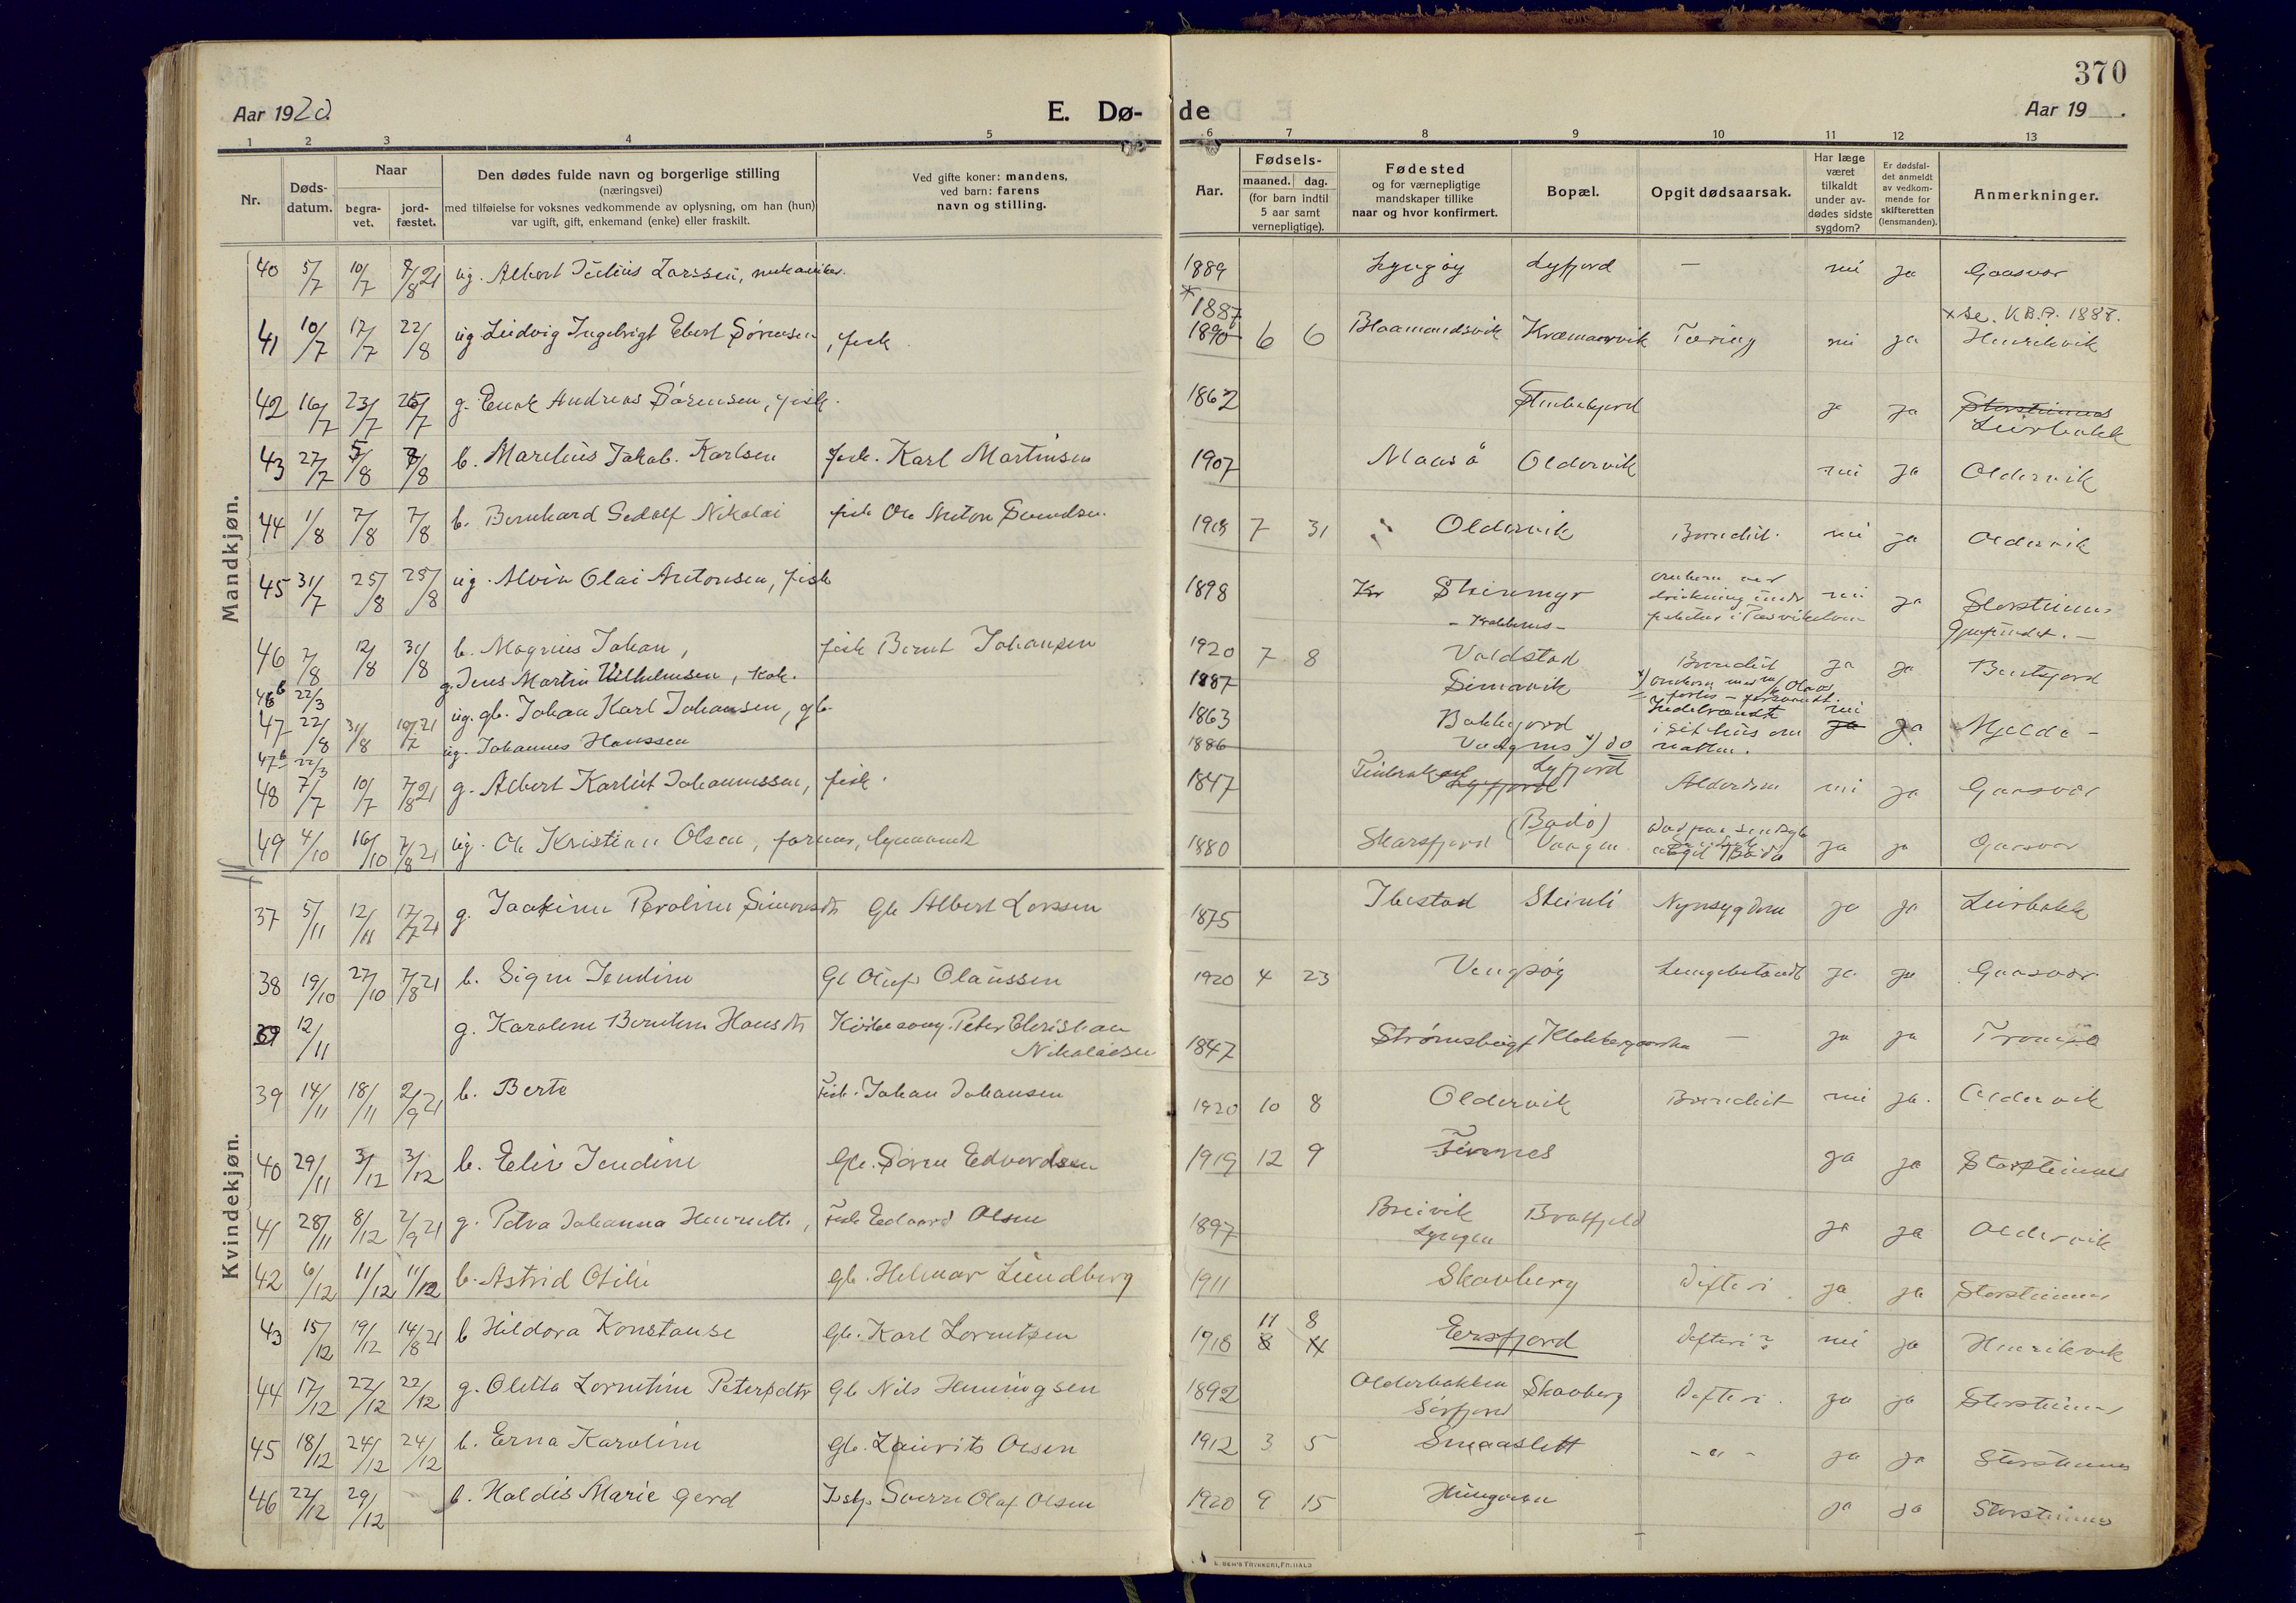 370
Aar 1920
E. Dø-
de
Aar 19 .
1 2 3 4 5 6 7 8 9 10 11 12 13
Nr.
Døds-
datum.
Naar
begra-
vet.
jord-
fæstet.
Den dødes fulde navn og borgerlige stilling
(næringsvei)
med tilføielse for voksnes vedkommende av oplysning, om han (hun)
var ugift, gift, enkemand (enke) eller fraskilt.
Ved gifte koner: mandens,
ved barn: farens
navn og stilling.
Aar.
Fødsels-
maaned. dag.
(for barn indtil
5 aar samt
vernepligtige).
Fødested
og for værnepligtige
mandskaper tillike
naar og hvor konfirmert.
Bopæl.
Opgit dødsaarsak.
Har læge
været
tilkaldt
under av-
dødes sidste
sygdom?
Er dødsfal-
det anmeldt
av vedkom-
mende for
skifteretten
(lensmanden).
Anmerkninger.
Mandkjøn.
40 5/7 10/7 8/8 21 ug. Albert Julius Larssen, 1889 Lyngøy Lyfjord — nei ja Gaasvær
* 1887 x se. K.B.P. 1887.
41 10/7 17/7 22/8 ug. Ludvig Ingebrigt Ebert Sørensen, fisk 1890 6 6 Blaamandsvik Kræmarvik Tæring nei ja Henrikvik
42 16/7 23/7 25/7 g. Enok Andreas Sørensen, fisk. 1862 ja ja Storsteinnes
Leirbakk
43 27/7 5/8 8/8 b. Marelius Jakob. Karlsen fisk. Karl Martinsen 1907 Maasø Oldervik nei ja Oldervik
44 1/8 7/8 7/8 b. Bernhard Sedolf Nikolai fisk Ole Anton 1918 7 31 Oldervik nei ja Oldervik
45 31/7 25/8 25/8 ug. Alvin Olai Antonsen, fisk 1898 Steinmyr nei ja Storsteinnes
omkom ved
drukning under
46 7/8 12/8 31/8 b. Magnus Johan, fisk Bernt Johansen 1920 7 8 Valdstad ja ja Bentsjord
46b 22/3 g. Jens Martin Vilhelmsen, kok. 1887 Simavik
47 22/8 31/8 10/7 21 ug. gb. Johan Karl Johansen, gb. 1863 Bakkejord Indebrændt nei ja ja Mjelde
i sit hus om
natten.
47b 22/3 ug. Johannes Hanssen 1886 do
48 7/7 10/7 7/8 21 g. Albert Karlut Johannessen, fisk. 1847 Lyfjord Lyfjord Alderdom nei ja Gaasvær
49 4/10 16/10 7/8 21 ug. Ole Kristian Olsen, 1880 Skarsfjord (Bodø) Vaagen ja ja Gaasvær
Kvindekjøn.
37 5/11 12/11 17/7 21 g. Jaakine Peroline Simonsdtr Gb Albert Larssen 1875 Ibestad Steinli Nyresygdom ja ja Leirbakk
38 19/10 27/10 7/8 21 b. Signe Jendine Gb Oluf Olaussen 1920 4 23 Vengsøy Lungebetændt ja ja Gaasvær
39 12/11 g. Karoline Berntine Hansdtr Peter Christian
Nikolaisen 1847 Strømsbugt — ja ja Tromsø
39 14/11 18/11 2/9 21 b. Berte Fisk. Johan Johansen 1920 10 8 Oldervik nei ja. Oldervik
40 29/11 3/12 3/12 b. Elin Jendine Gb. Søren Edvardsen 1919 12 9 Finnes ja ja Storsteinnes
41 28/11 8/12 2/9 21 g. Petra Johanna Henriette, Fisk Edvard Olsen 1897 Breivik
Lyngen ja ja Oldervik
42 6/12 11/12 11/12 b. Astrid Otilie gb. Helmar Lundberg 1911 Skavberg Difteri. ja ja Storsteinnes
43 15/12 19/12 14/8 21 b Hildora Konstanse Gb. Karl Lorentzen 1918 11 8 8 11 Ersfjord Difteri? nei ja Henrikvik
44 17/12 22/12 22/12 g. Oletta Lorentine Petersdtr Gb Nils Henningsen 1892 Olderbakken
Sørfjord Skavberg Difteri. ja ja Storsteinnes
45 18/12 24/12 24/12 b. Erna Karoline Gb. Laurits Olsen 1912 3 5 Smaaslett - " - ja ja Storsteinnes
46 22/12 29/12 b. Haldis Marie Gerd Sverre Olaf Olsen 1920 9 15 ja ja Storsteinnes